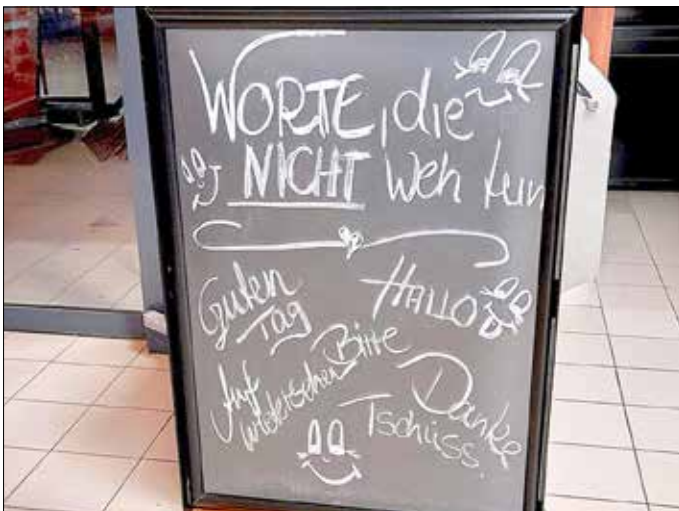 WORTE, die
NICHT weh tun
Guten
Tag
HALLO
Bitte
Auf
wiedersehen
Danke
Tschüss.